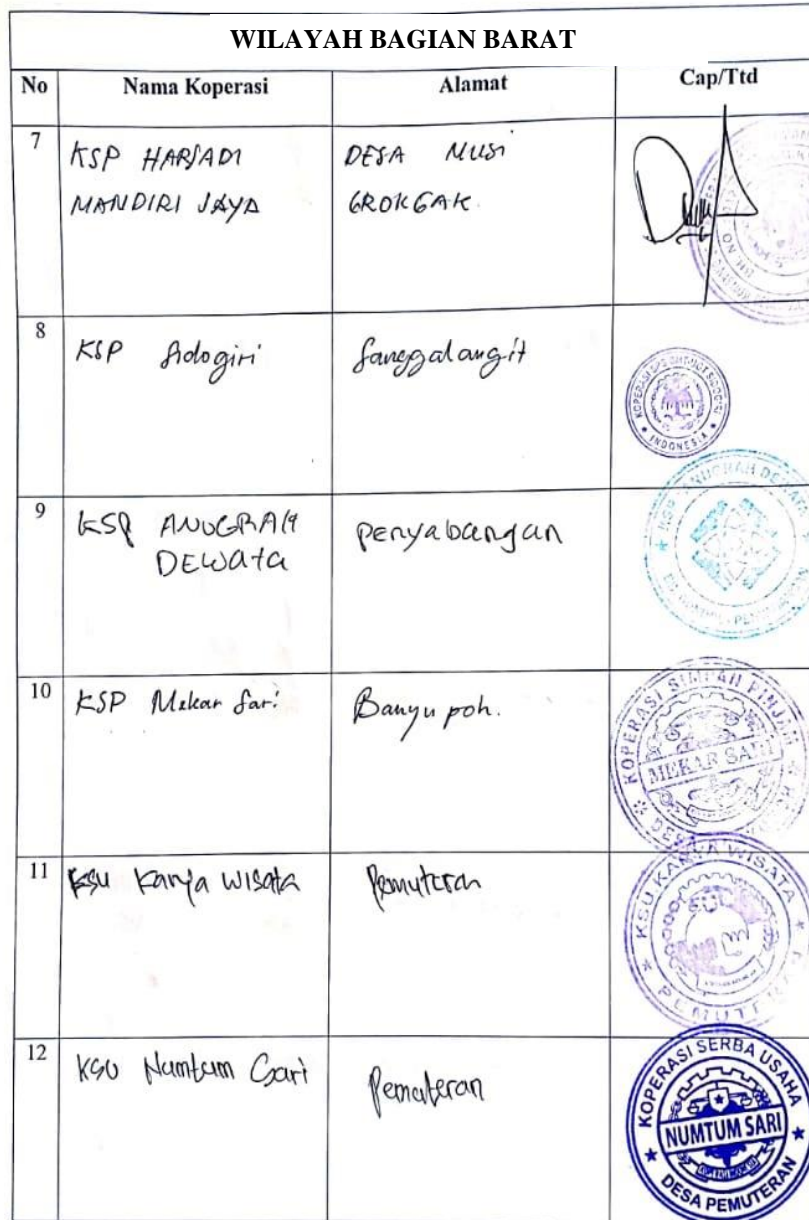 WILAYAH BAGIAN BARAT
No Nama Koperasi Alamat Cap/Ttd
7 KSP HARJADI DESA MUSI
MANDIRI JAYA GROKGAK.
8 KSP Sidogiri Sanggalangit
KOPERASI SIDOGIRI
INDONESIA
9 KSP ANUGRAH Penyabangan
DEWata
KSP ANUGRAH DEWATA
10 KSP Mekar Sari Banyu poh.
KOPERASI SIMPAN PINJAM
MEKAR SARI
11 KSU Karya Wisata Pemuteran
KSU KARYA WISATA
PEMUTERAN
12 KSU Numtum Sari Pemuteran
KOPERASI SERBA USAHA
NUMTUM SARI
DESA PEMUTERAN